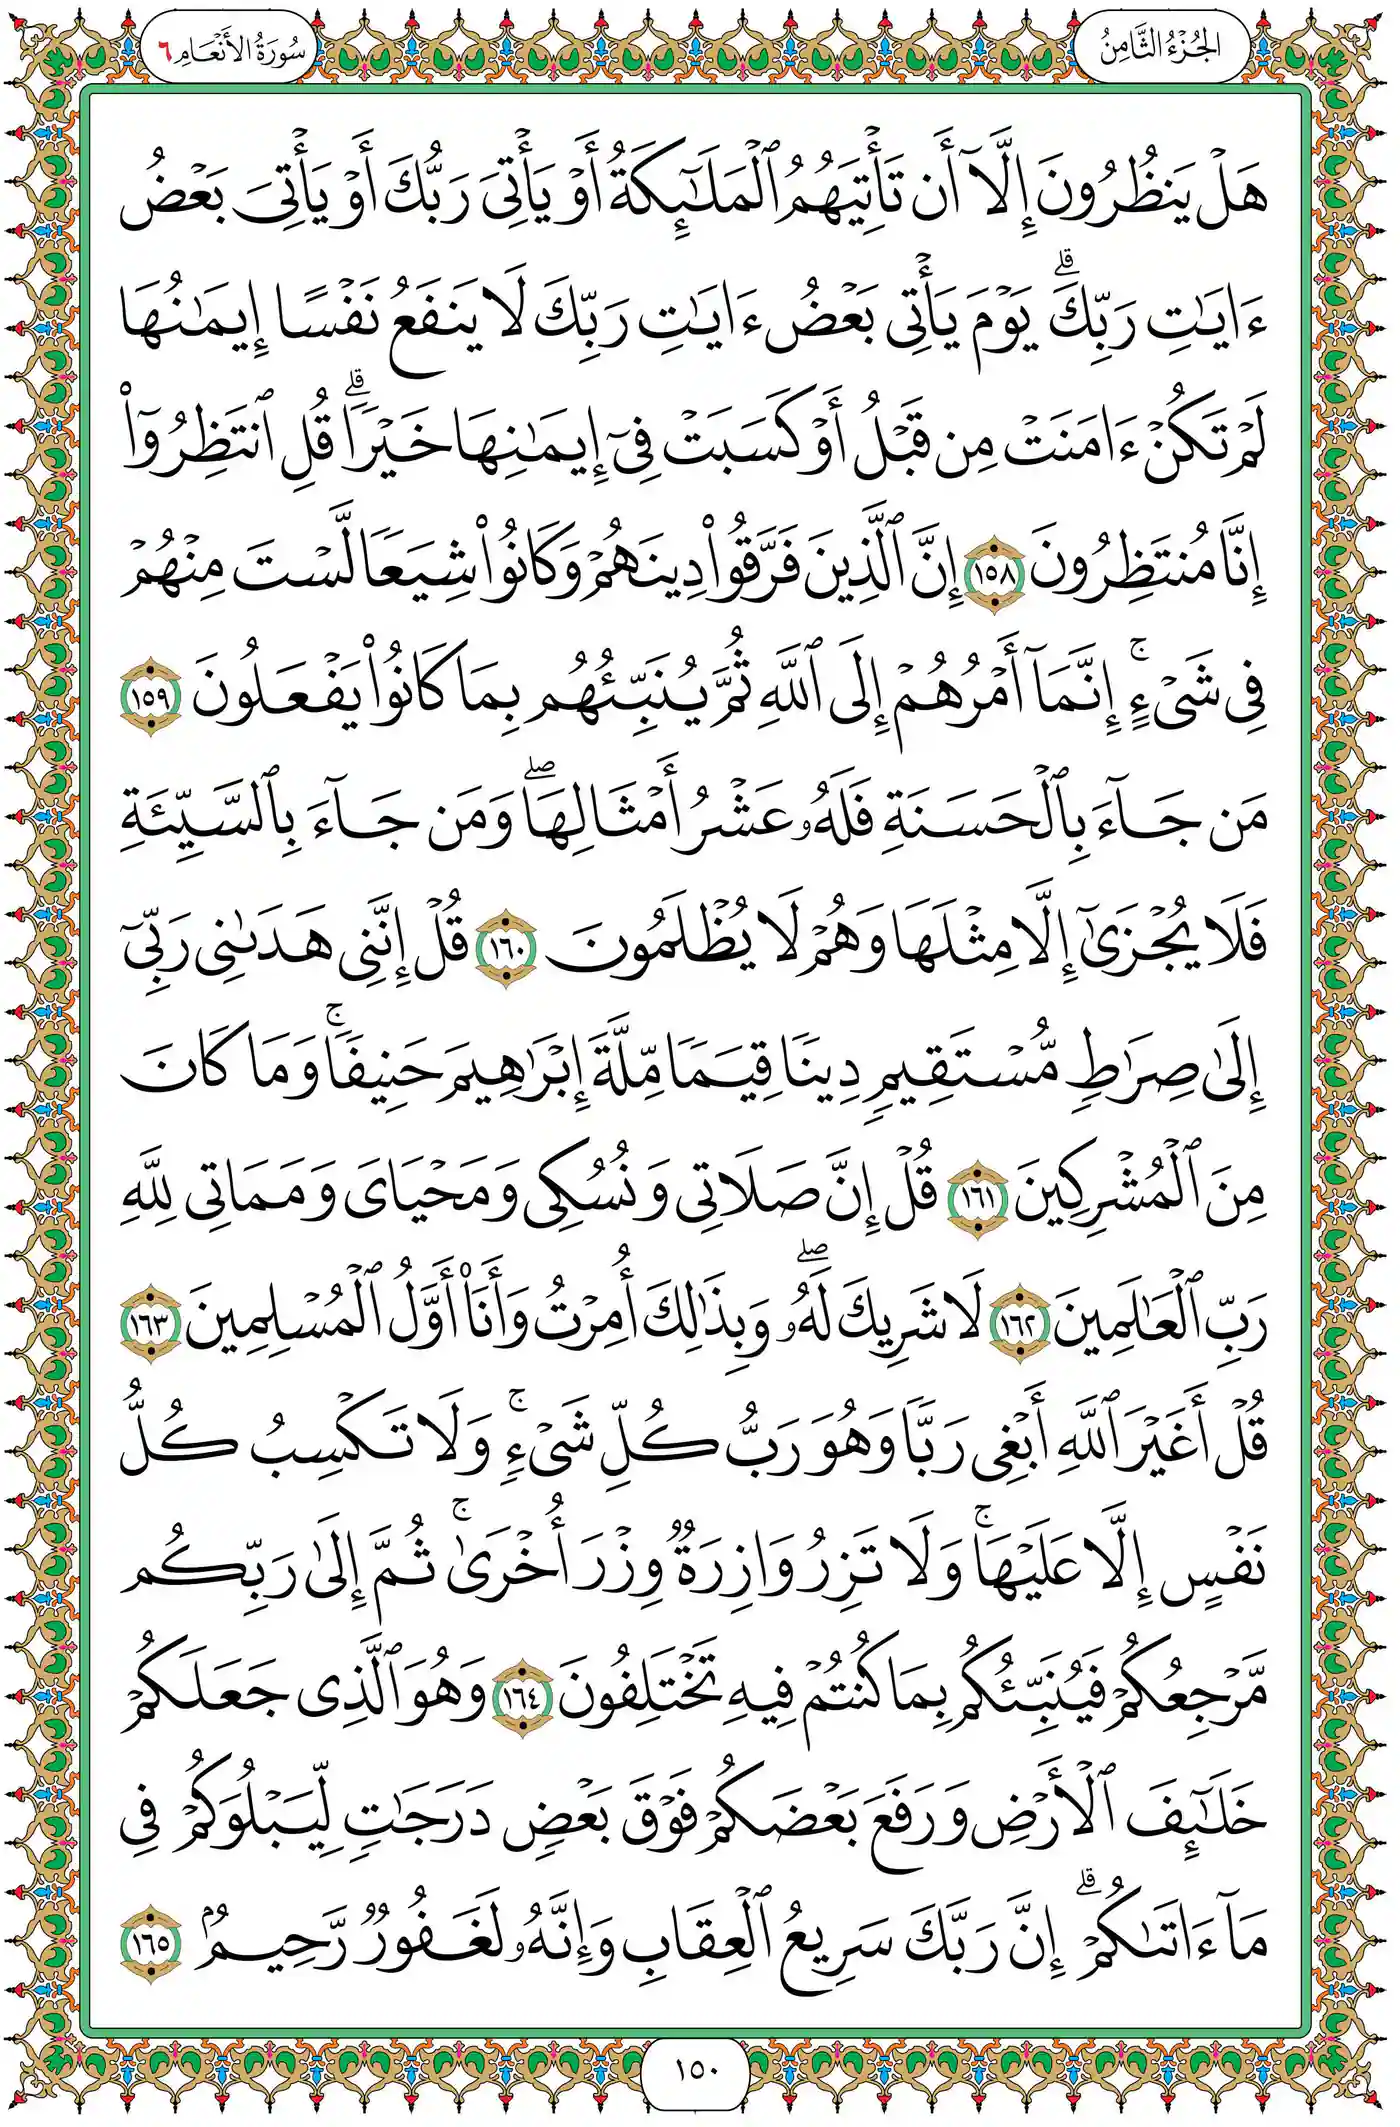 الجُزْءُ الثَّامِنُ
سُورَةُ الأَنْعَامِ ٦
هَلْ يَنظُرُونَ إِلَّآ أَن تَأْتِيَهُمُ ٱلْمَلَـٰٓئِكَةُ أَوْ يَأْتِىَ رَبُّكَ أَوْ يَأْتِىَ بَعْضُ
ءَايَـٰتِ رَبِّكَ ۗ يَوْمَ يَأْتِى بَعْضُ ءَايَـٰتِ رَبِّكَ لَا يَنفَعُ نَفْسًا إِيمَـٰنُهَا
لَمْ تَكُنْ ءَامَنَتْ مِن قَبْلُ أَوْ كَسَبَتْ فِىٓ إِيمَـٰنِهَا خَيْرًا ۗ قُلِ ٱنتَظِرُوٓا۟
إِنَّا مُنتَظِرُونَ ١٥٨ إِنَّ ٱلَّذِينَ فَرَّقُوا۟ دِينَهُمْ وَكَانُوا۟ شِيَعًا لَّسْتَ مِنْهُمْ
فِى شَىْءٍ ۚ إِنَّمَآ أَمْرُهُمْ إِلَى ٱللَّهِ ثُمَّ يُنَبِّئُهُم بِمَا كَانُوا۟ يَفْعَلُونَ ١٥٩
مَن جَآءَ بِٱلْحَسَنَةِ فَلَهُۥ عَشْرُ أَمْثَالِهَا ۖ وَمَن جَآءَ بِٱلسَّيِّئَةِ
فَلَا يُجْزَىٰٓ إِلَّا مِثْلَهَا وَهُمْ لَا يُظْلَمُونَ ١٦٠ قُلْ إِنَّنِى هَدَىٰنِى رَبِّىٓ
إِلَىٰ صِرَٰطٍ مُّسْتَقِيمٍ دِينًا قِيَمًا مِّلَّةَ إِبْرَٰهِيمَ حَنِيفًا ۚ وَمَا كَانَ
مِنَ ٱلْمُشْرِكِينَ ١٦١ قُلْ إِنَّ صَلَاتِى وَنُسُكِى وَمَحْيَاىَ وَمَمَاتِى لِلَّهِ
رَبِّ ٱلْعَـٰلَمِينَ ١٦٢ لَا شَرِيكَ لَهُۥ ۖ وَبِذَٰلِكَ أُمِرْتُ وَأَنَا۠ أَوَّلُ ٱلْمُسْلِمِينَ ١٦٣
قُلْ أَغَيْرَ ٱللَّهِ أَبْغِى رَبًّا وَهُوَ رَبُّ كُلِّ شَىْءٍ ۚ وَلَا تَكْسِبُ كُلُّ
نَفْسٍ إِلَّا عَلَيْهَا ۚ وَلَا تَزِرُ وَازِرَةٌ وِزْرَ أُخْرَىٰ ۚ ثُمَّ إِلَىٰ رَبِّكُم
مَّرْجِعُكُمْ فَيُنَبِّئُكُم بِمَا كُنتُمْ فِيهِ تَخْتَلِفُونَ ١٦٤ وَهُوَ ٱلَّذِى جَعَلَكُمْ
خَلَـٰٓئِفَ ٱلْأَرْضِ وَرَفَعَ بَعْضَكُمْ فَوْقَ بَعْضٍ دَرَجَـٰتٍ لِّيَبْلُوَكُمْ فِى
مَآ ءَاتَىٰكُمْ ۗ إِنَّ رَبَّكَ سَرِيعُ ٱلْعِقَابِ وَإِنَّهُۥ لَغَفُورٌ رَّحِيمٌۢ ١٦٥
١٥٠